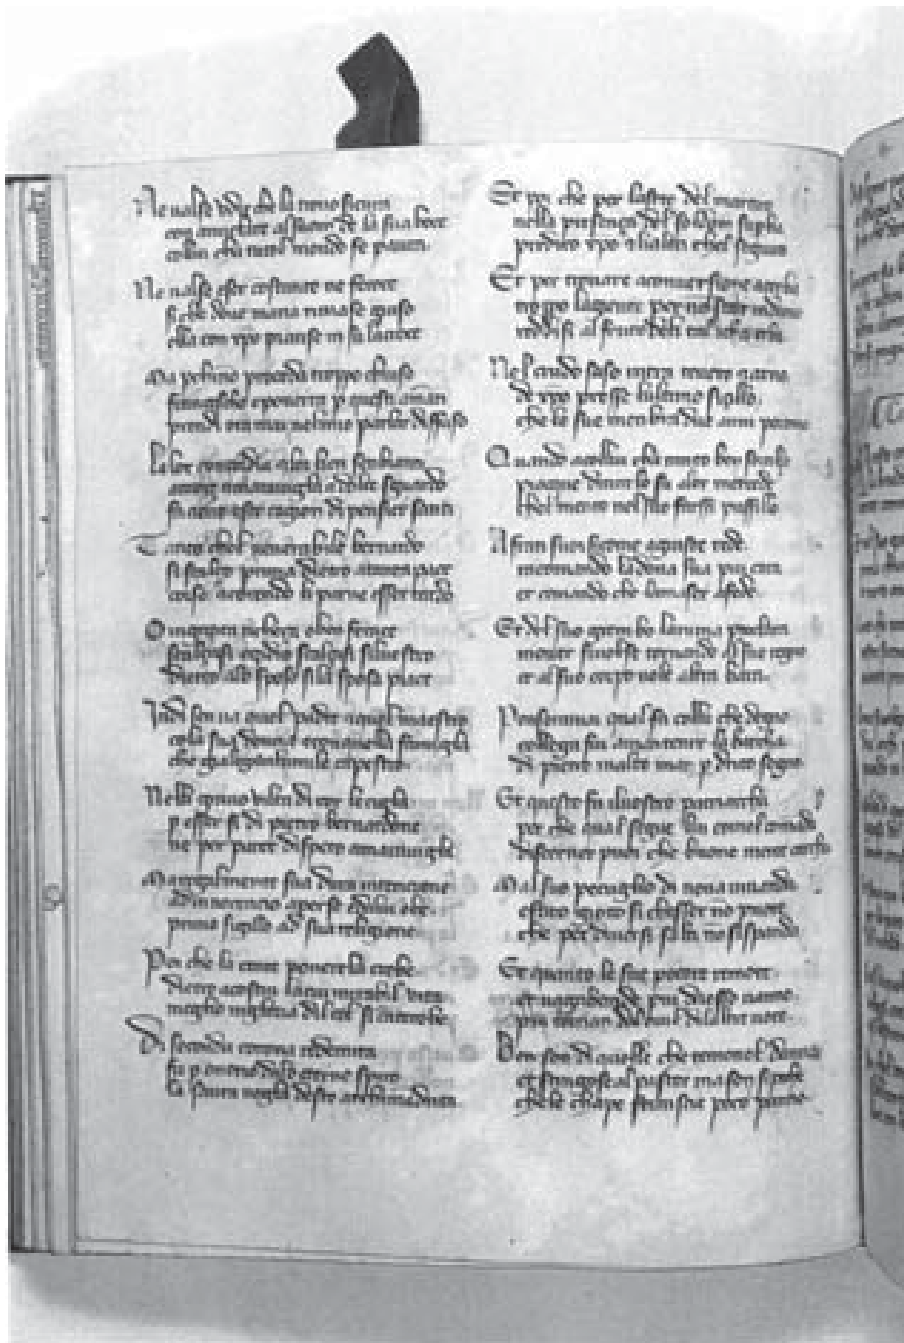 Ne valse udir che la trovo sicura
con al suono de la sua voce
colui cha tutol mondo fe paura
Ne valse esser costante ne feroce
si che dove maria rimase giuso
ella con xpo pianse in su la croce
Ma perchio no proceda troppo chiuso
francescho e poverta p questi amanti
prendi oramai nel mio parlar diffuso
La lor concordia e lor lieti sembianti
amore e maraviglia e dolce sguardo
facieno esser cagion di pensier santi
Tanto chel venerabile bernardo
si scalzo prima e dietro a tanta pace
corse e correndo li parve esser tardo
O ignota richeza o ben ferace
scalzasi egidio scalzasi silvestro
dietro alo sposo si la sposa piace
Indi sen va quel padre e quel maestro
cola sua donna e con quella famiglia
che gia legava lumile capestro
Ne li gravo vilta di cor le ciglia
p esser fi di pietro bernardone
ne per parer dispetto a maraviglia
Ma regalmente sua dura intencione
ad innocencio aperse e da lui ebe
primo sigillo a sua religione
Poi che la gente poverella crebe
dietro a costui la cui mirabil vita
meglio in gloria del ciel si cantarebe
Di seconda corona redimita
fu p onorio da lo eterno spiro
la santa voglia desto archimandrita
Et poi che per la sete del martiro
nella presenza del soldan superba
predico xpo e li altri chel seguiro
Et per trovare a conversione acerba
troppo la gente per no stare indarno
al frutto de italica erba
Nel crudo sasso intra tevero e arno
da xpo prese lultimo sigillo
che le sue membra due anni portarno
Quando a colui cha tanto ben sortillo
piaque di trarlo suso a la mercede
chel merito nel suo farsi pusillo
A frati suoi sicome a giuste rede
racomando la dona sua piu cara
et comando che lamaser a fede
Et del suo grembo lanima preclara
mover si volse tornando al suo regno
et al suo corpo volle altra bara
Pensa ormai qual fu colui che degno
collega fu a mantener la barcha
di pietro in alto mar p dritto segno
Et questo fu il nostro patriarcha
per che qual segue lui comel comanda
discerner puoi che buone merce carcha
Mal suo peculio di nova vivanda
e fatto giotto si chesser no puote
che per diversi salti no si spanda
Et quanto le sue pecore remote
et vagabonde piu da esso vanno
piu tornan alovil di latte vote
Ben son di quelle che temonol danno
et stringosi al pastor ma son si poche
che le chape fornisce poco panno